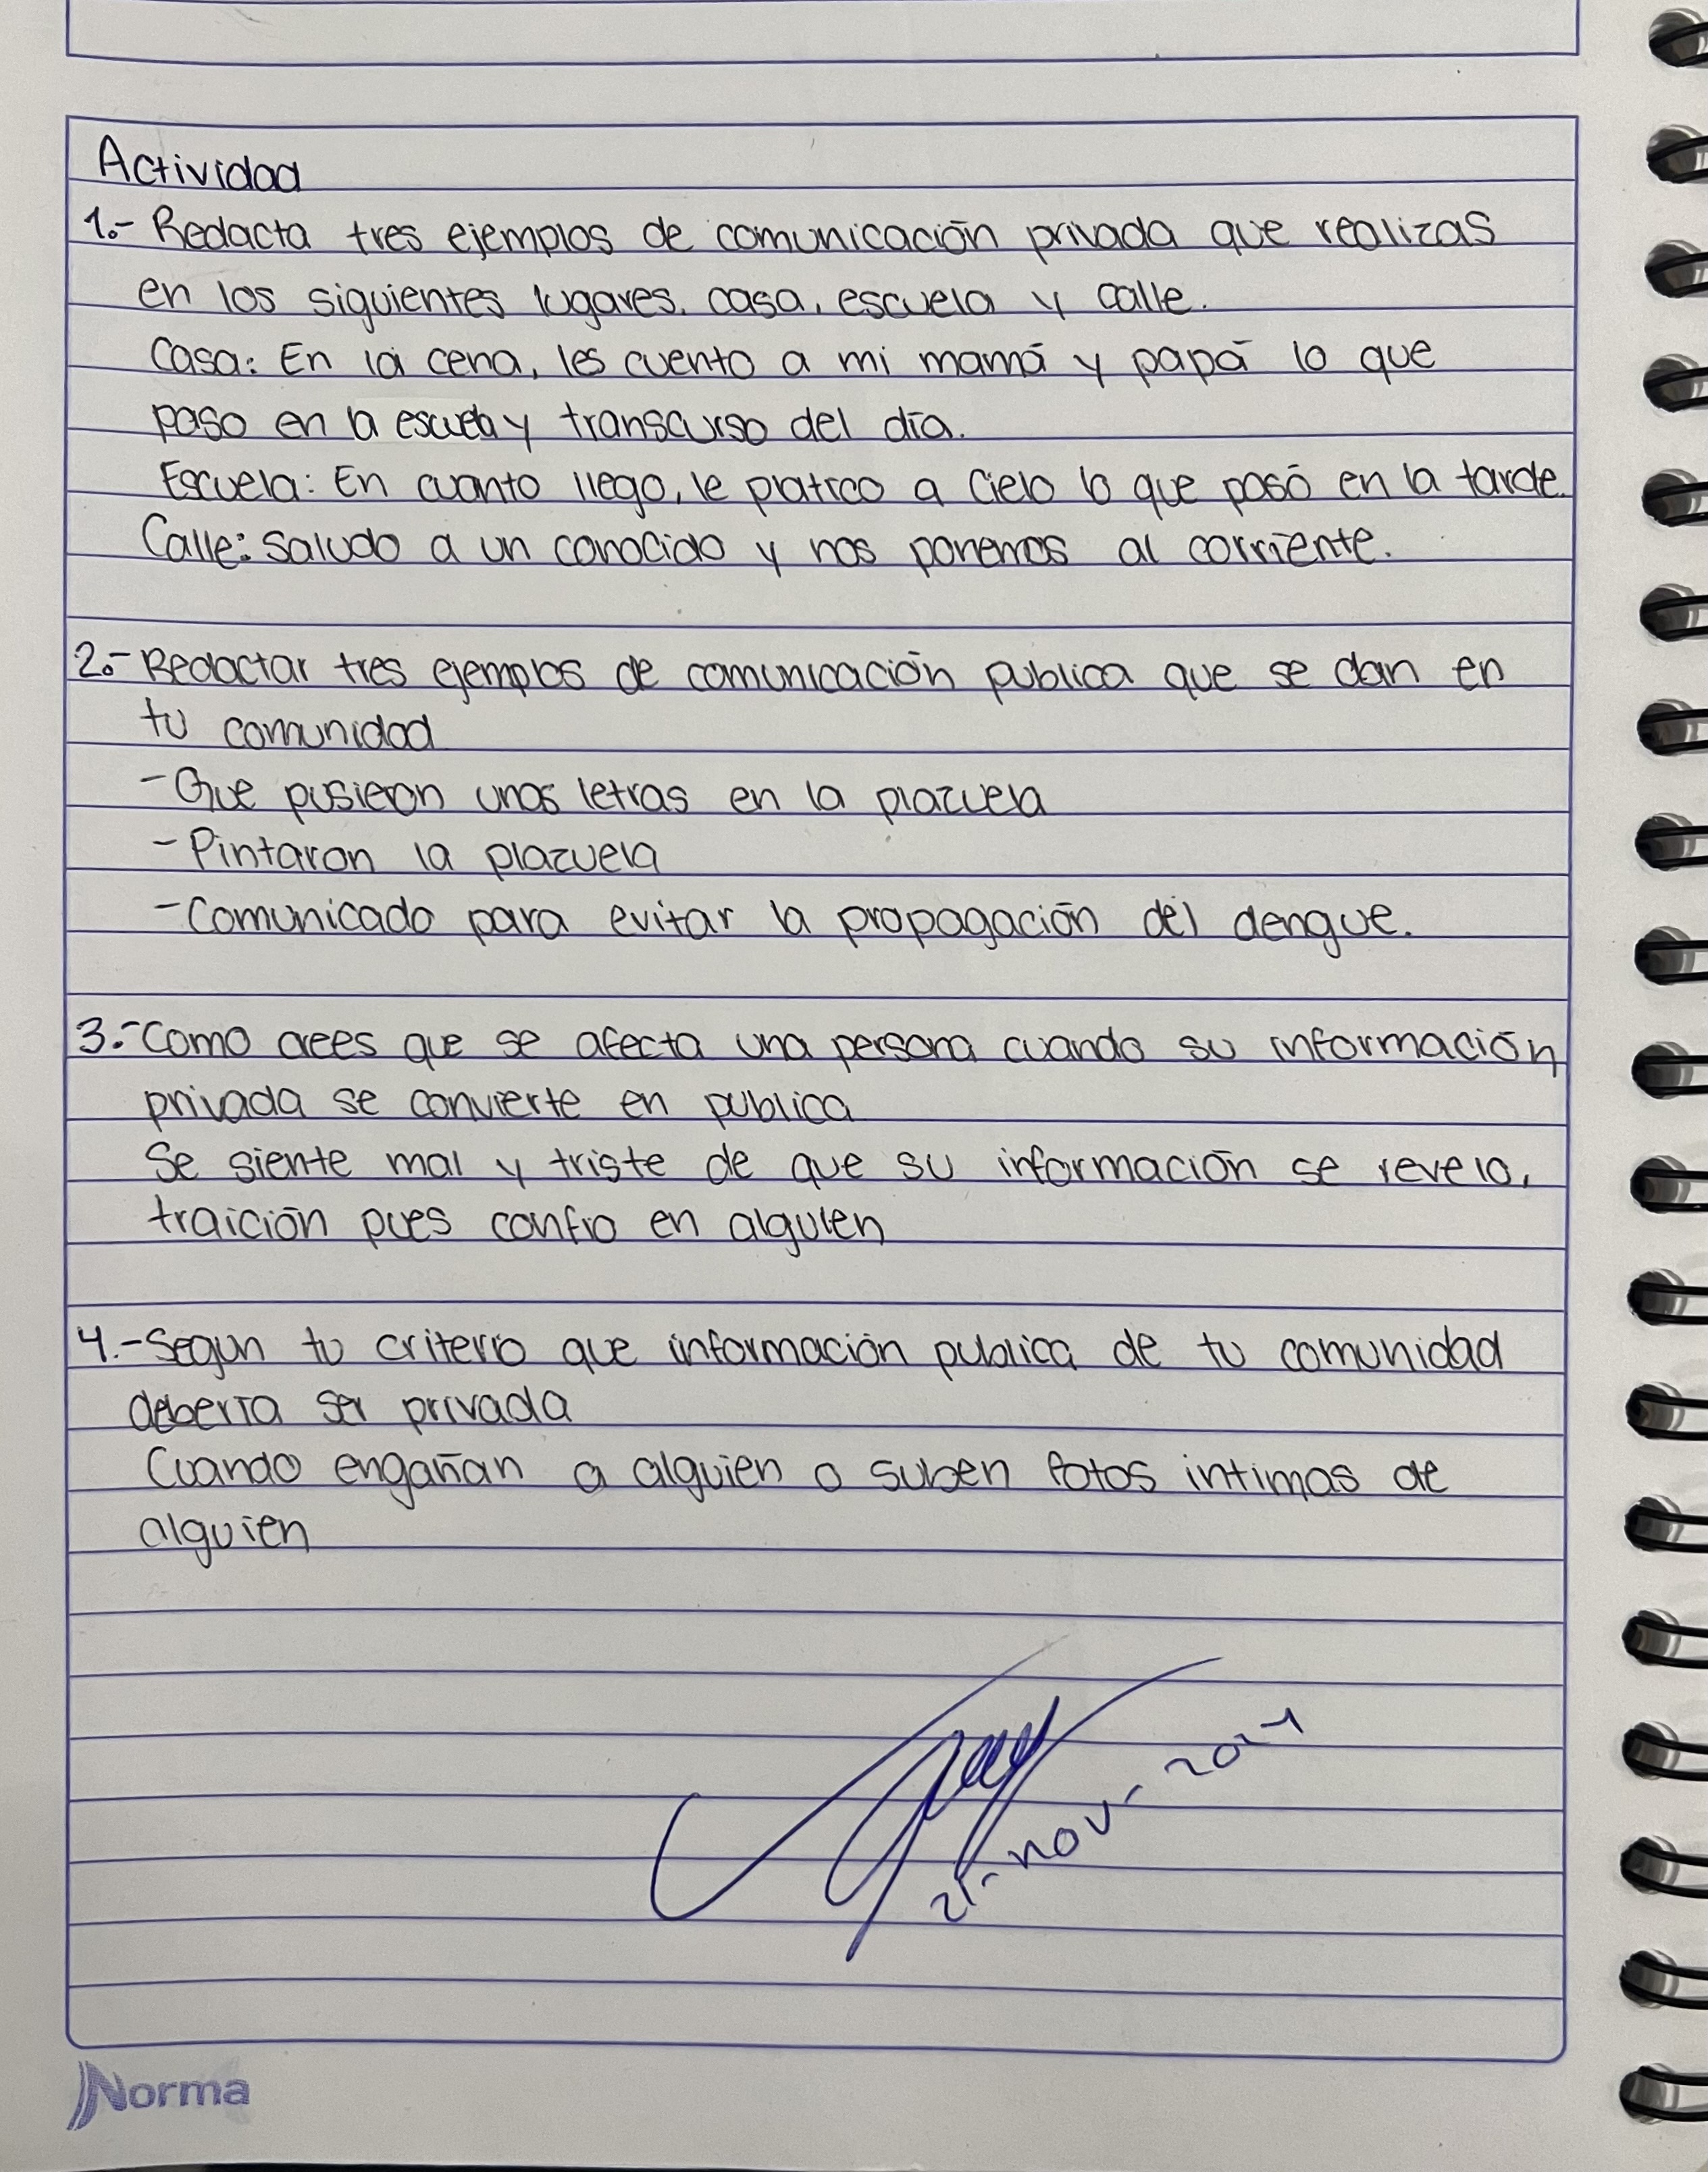 Actividad
1.- Redacta tres ejemplos de comunicación privada que realizas
en los siguientes lugares. casa, escuela y calle.
Casa: En la cena, les cuento a mi mamá y papá lo que
paso en la escuela y transcurso del día.
Escuela: En cuanto llego, le platico a Cielo lo que pasó en la tarde.
Calle: Saludo a un conocido y nos ponemos al corriente.
2.- Redactar tres ejemplos de comunicación publica que se dan en
tu comunidad
- Que pusieron unas letras en la plazuela
- Pintaron la plazuela
- Comunicado para evitar la propagación del dengue.
3.- Como crees que se afecta una persona cuando su información
privada se convierte en publica
Se siente mal y triste de que su información se revelo,
traición pues confio en alguien
4.- Segun tu criterio que información publica de tu comunidad
debería ser privada
Cuando engañan a alguien o suben fotos intimas de
alguien
21-nov-2024
Norma